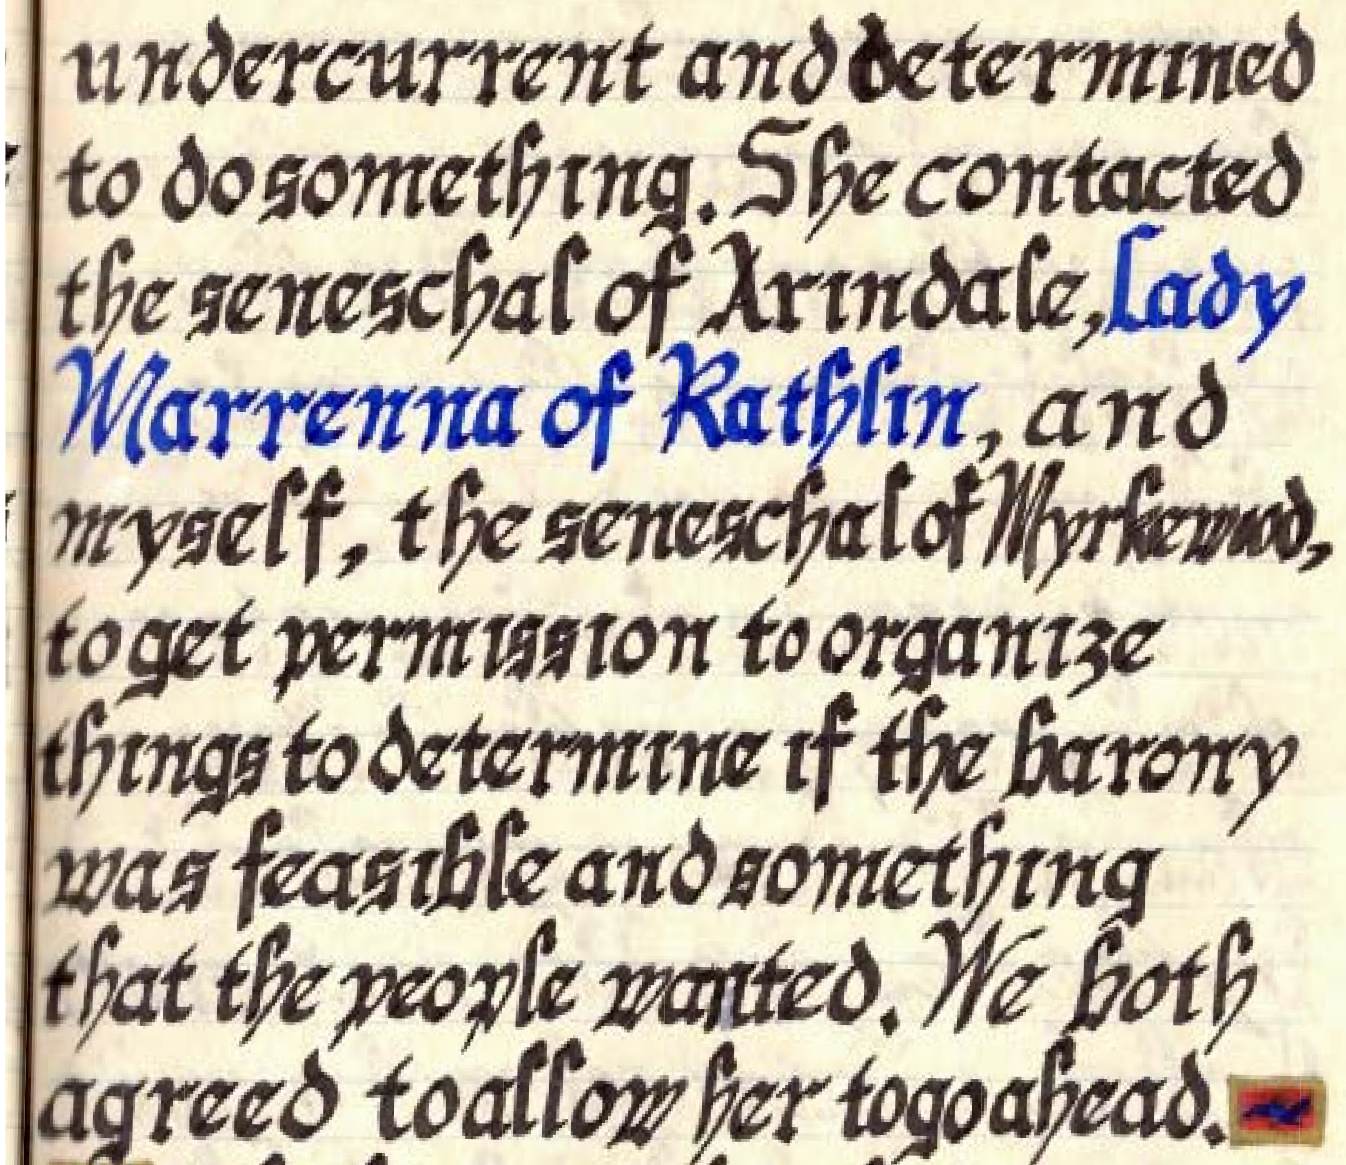 undercurrent and determined
to do something. She contacted
the seneschal of Arindale, Lady
Marrenna of Rathlin, and
myself, the seneschal of Myrkewood,
to get permission to organize
things to determine if the barony
was feasible and something
that the people wanted. We both
agreed to allow her to go ahead.